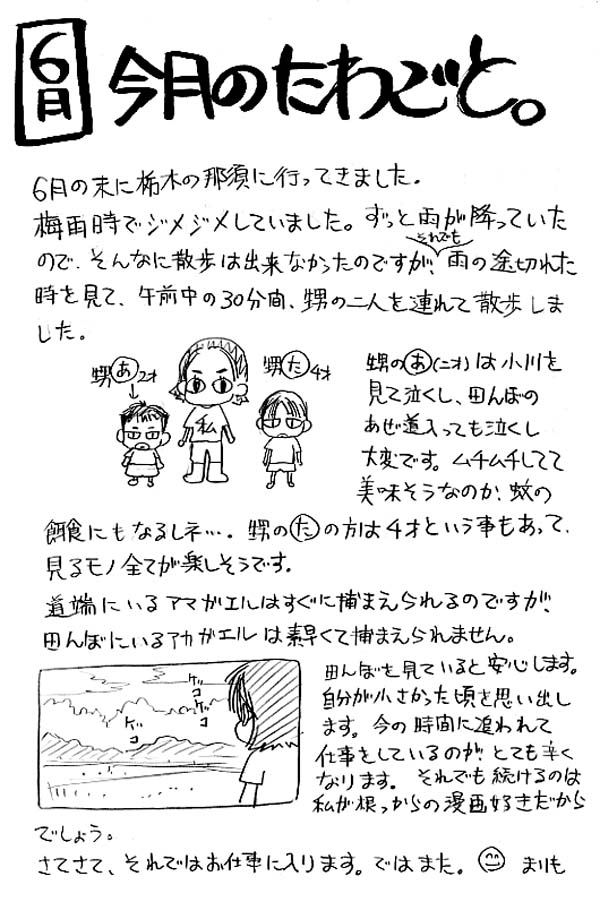 6月 今月のたわごと。
6月の末に栃木の那須に行ってきました。
梅雨時でジメジメしていました。ずっと雨が降っていた
ので、そんなに散歩は出来なかったのですが、それでも雨の途切れた
時を見て、午前中の30分間、甥の二人を連れて散歩しま
した。
甥あ2才
私
甥た4才
甥のあ(二才)は小川を
見て泣くし、田んぼの
あぜ道入っても泣くし
大変です。ムチムチしてて
美味そうなのか、蚊の
餌食にもなるしネ…。甥のたの方は4才という事もあって、
見るモノ全てが楽しそうです。
道端にいるアマガエルはすぐに捕まえられるのですが、
田んぼにいるアカガエルは素早くて捕まえられません。
ゲコ
ゲコ
ゲコ
田んぼを見ていると安心します。
自分が小さかった頃を思い出し
ます。今の時間に追われて
仕事をしているのが、とても辛く
なります。それでも続けるのは
私が根っからの漫画好きだから
でしょう。
さてさて、それではお仕事に入ります。ではまた。 まりも